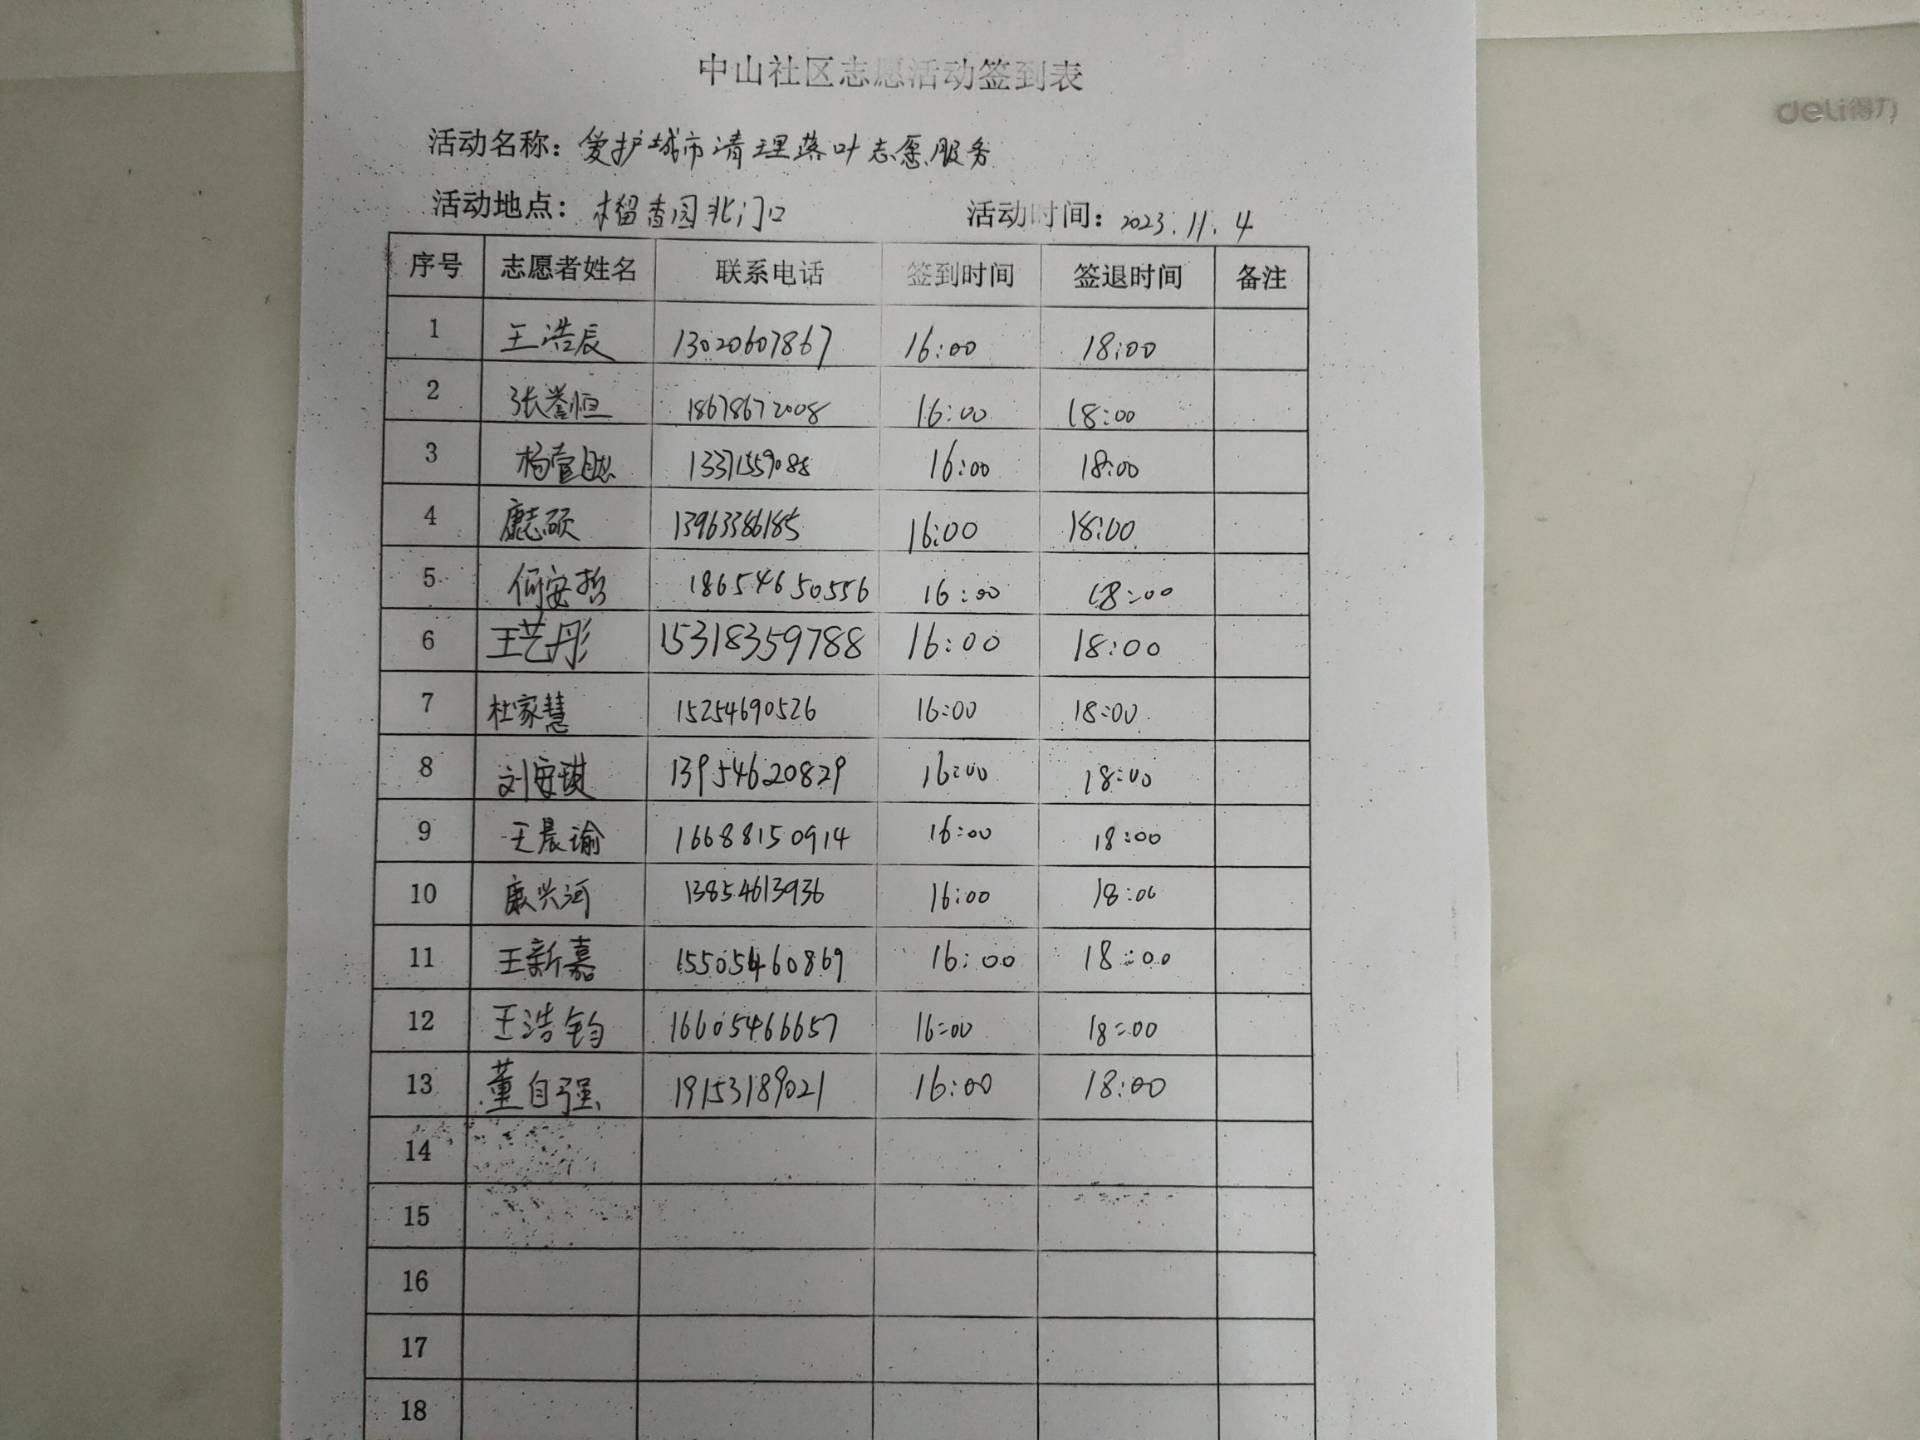 中山社区志愿活动签到表
deli得力
活动名称：爱护城市清理落叶志愿服务
活动地点：榴香园北门口 活动时间：2023.11.4
序号 志愿者姓名 联系电话 签到时间 签退时间 备注
1 王浩辰 13020607867 16:00 18:00
2 张誉恒 18678672008 16:00 18:00
3 13371559088 16:00 18:00
4 康志硕 13963386185 16:00 18:00
5 何安哲 18654650556 16:00 18:00
6 王艺彤 15318359788 16:00 18:00
7 杜家慧 15254690526 16:00 18:00
8 刘安琪 13954620829 16:00 18:00
9 王晨瑜 16688150914 16:00 18:00
10 康兴河 13854613936 16:00 18:00
11 王新嘉 15505460869 16:00 18:00
12 王浩钧 16605466657 16:00 18:00
13 董自强 19153189021 16:00 18:00
14
15
16
17
18